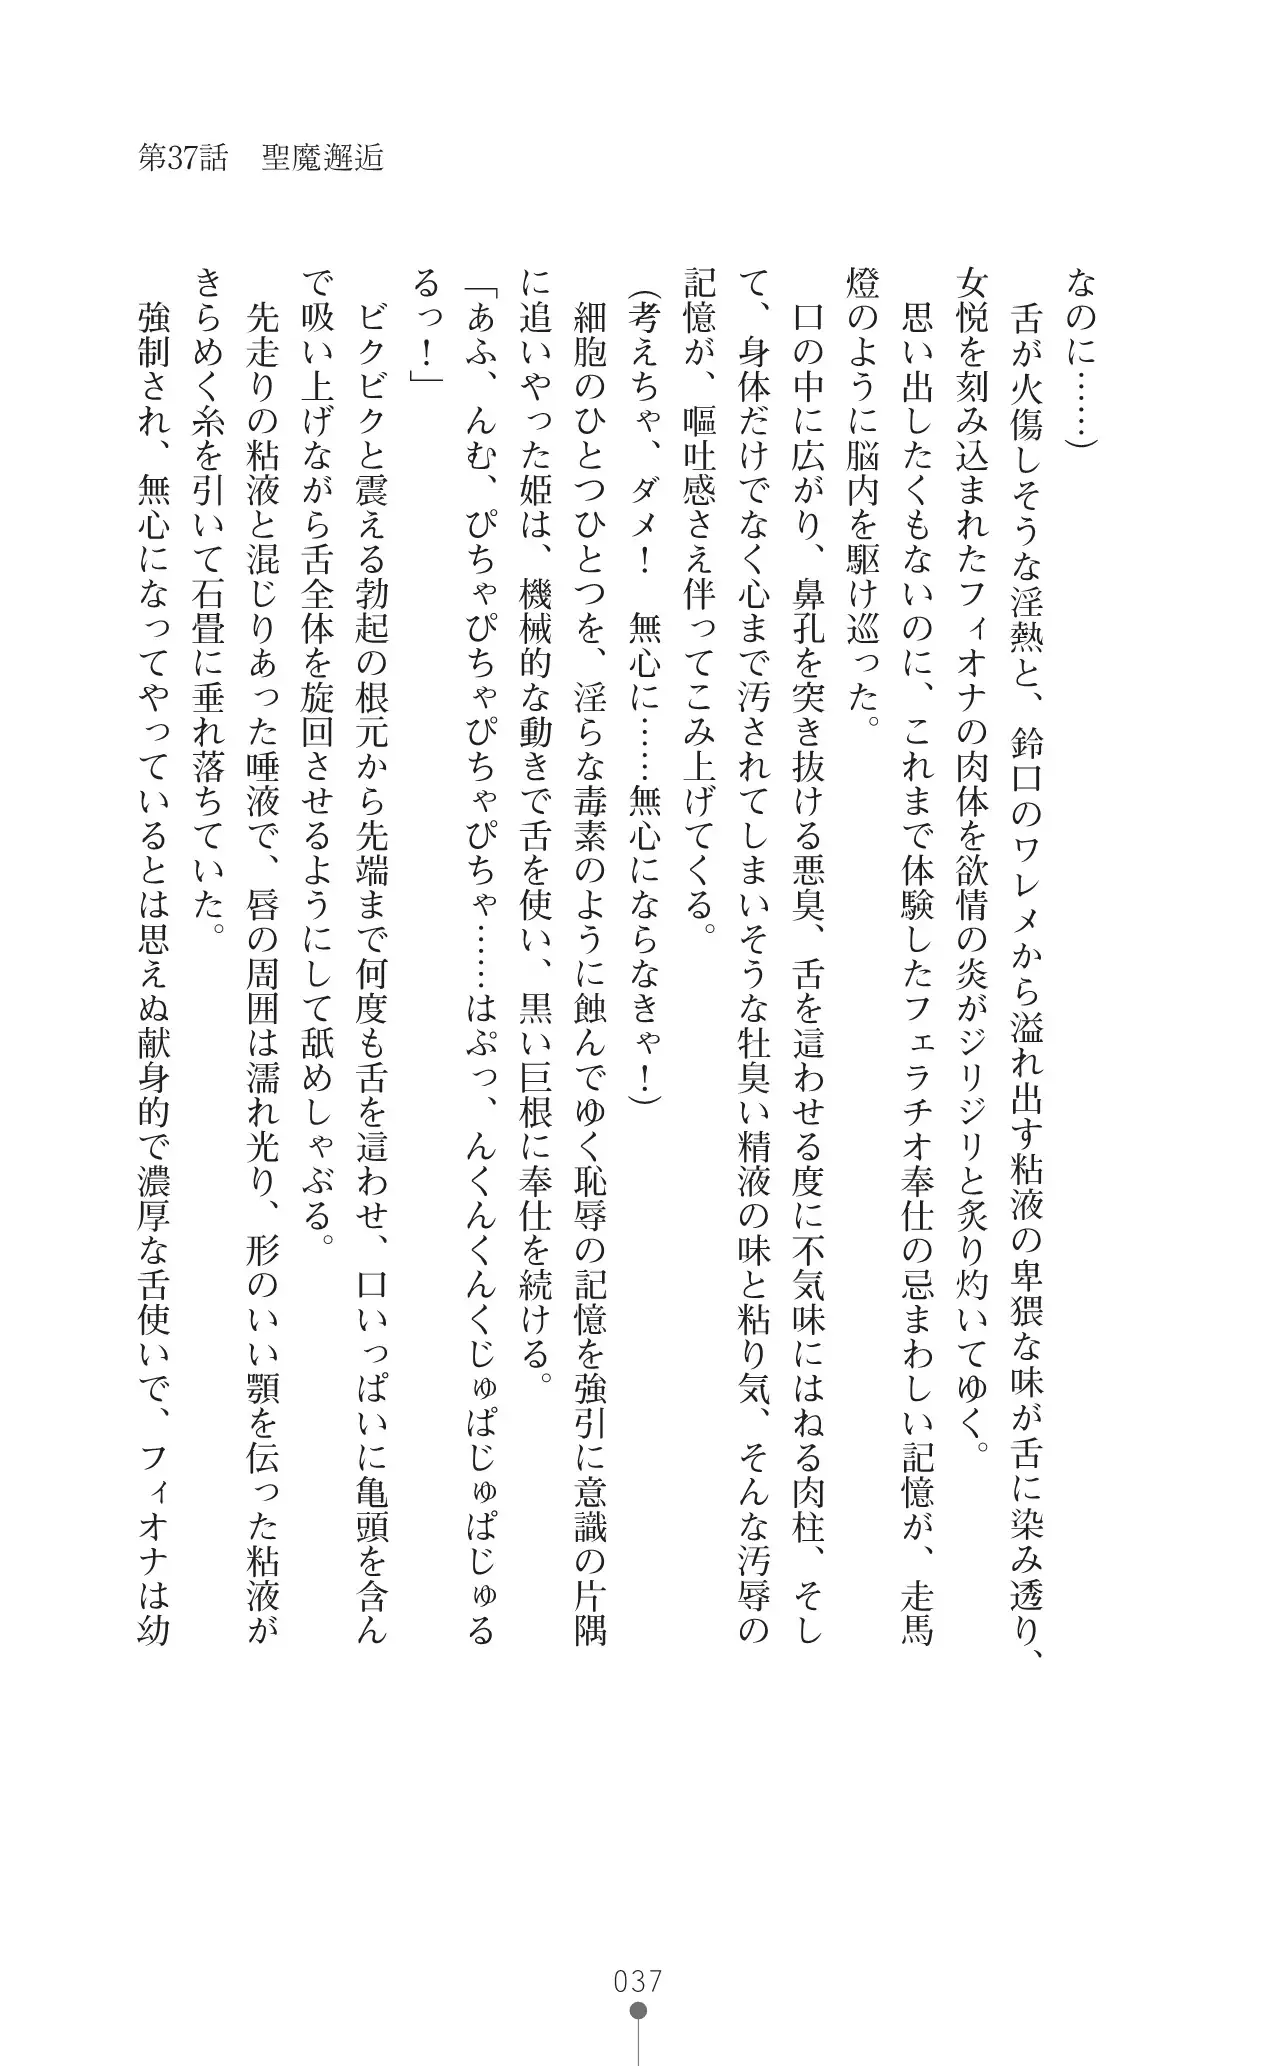 第37話　聖魔邂逅
なのに……）
　舌が火傷しそうな淫熱と、鈴口のワレメから溢れ出す粘液の卑猥な味が舌に染み透り、
女悦を刻み込まれたフィオナの肉体を欲情の炎がジリジリと炙り灼いてゆく。
　思い出したくもないのに、これまで体験したフェラチオ奉仕の忌まわしい記憶が、走馬
燈のように脳内を駆け巡った。
　口の中に広がり、鼻孔を突き抜ける悪臭、舌を這わせる度に不気味にはねる肉柱、そし
て、身体だけでなく心まで汚されてしまいそうな牡臭い精液の味と粘り気、そんな汚辱の
記憶が、嘔吐感さえ伴ってこみ上げてくる。
（考えちゃ、ダメ！　無心に……無心にならなきゃ！）
　細胞のひとつひとつを、淫らな毒素のように蝕んでゆく恥辱の記憶を強引に意識の片隅
に追いやった姫は、機械的な動きで舌を使い、黒い巨根に奉仕を続ける。
「あふ、んむ、ぴちゃぴちゃぴちゃぴちゃ……はぷっ、んくんくんくじゅぱじゅぱじゅる
るっ！」
　ビクビクと震える勃起の根元から先端まで何度も舌を這わせ、口いっぱいに亀頭を含ん
で吸い上げながら舌全体を旋回させるようにして舐めしゃぶる。
　先走りの粘液と混じりあった唾液で、唇の周囲は濡れ光り、形のいい顎を伝った粘液が
きらめく糸を引いて石畳に垂れ落ちていた。
　強制され、無心になってやっているとは思えぬ献身的で濃厚な舌使いで、フィオナは幼
037